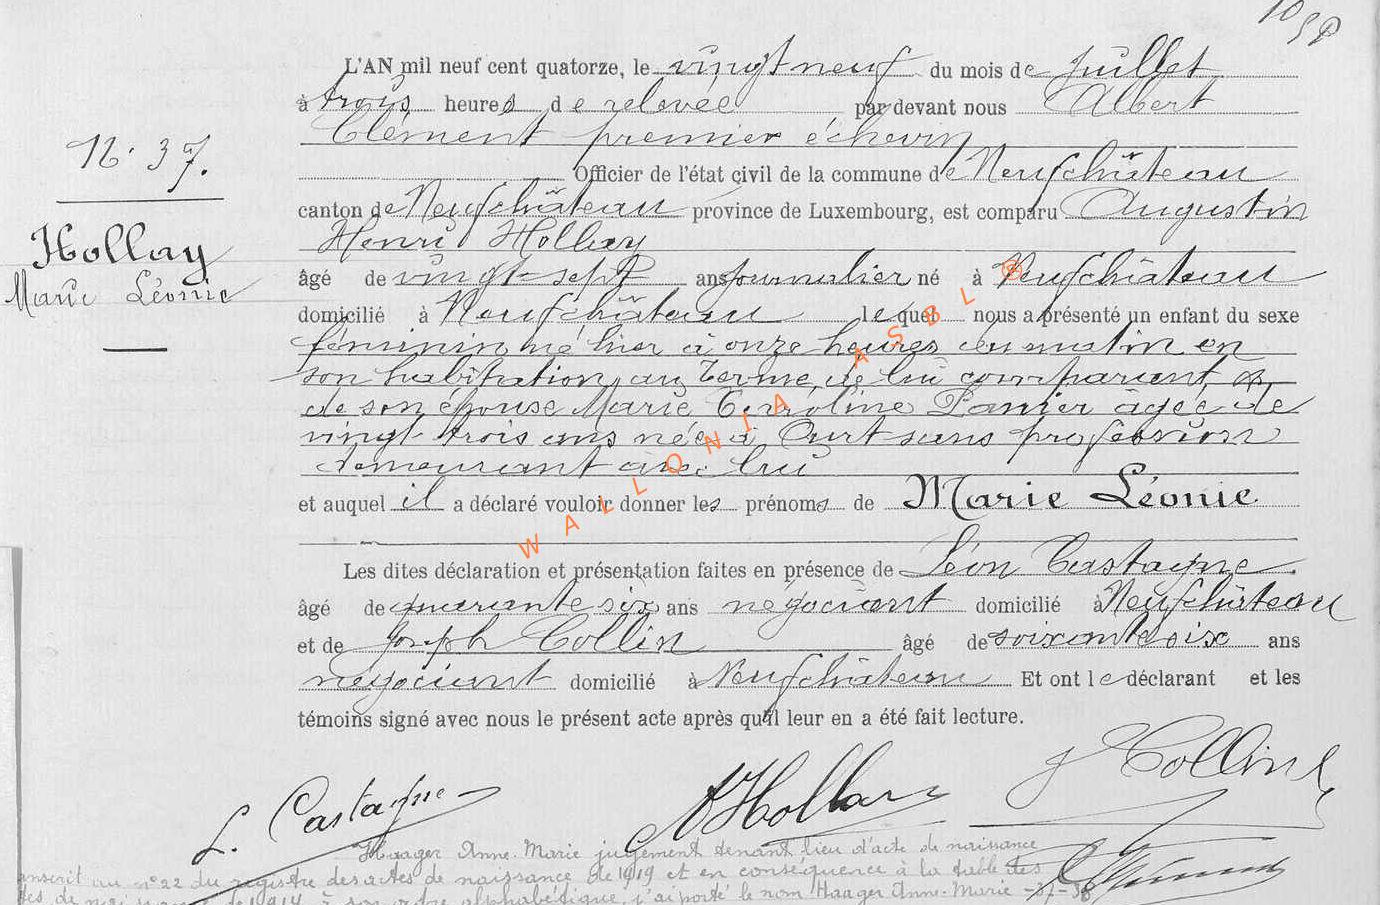 N. 37.
Hollay
Marie Léonie
L'AN mil neuf cent quatorze, le vingt neuf du mois de juillet
à trois heures de relevée par devant nous Albert
Clément premier échevin
Officier de l'état civil de la commune de Neufchâteau
canton de Neufchâteau province de Luxembourg, est comparu Augustin
Henri Hollay
âgé de vingt-sept ans journalier né à Neufchâteau
domicilié à Neufchâteau lequel nous a présenté un enfant du sexe
féminin né hier à onze heures du matin en
son habitation au Terme, de lui comparant, &
de son épouse Marie Caroline Panier âgée de
vingt trois ans née à Ourt sans profession
demeurant avec lui
et auquel il a déclaré vouloir donner les prénoms de Marie Léonie
Les dites déclaration et présentation faites en présence de Léon Castagne
âgé de quarante six ans négociant domicilié à Neufchâteau
et de Joseph Collin âgé de soixante six ans
négociant domicilié à Neufchâteau Et ont le déclarant et les
témoins signé avec nous le présent acte après qu'il leur en a été fait lecture.
J Collin
L. Castagne
A Hollay
Haager Anne-Marie jugement tenant lieu d'acte de naissance
inscrit au n° 22 du registre des actes de naissance de 1919 et en conséquence à la table des
de 1914 à son ordre alphabétique, j'ai porté le nom Haager Anne-Marie
WALLONIA ASBL ®